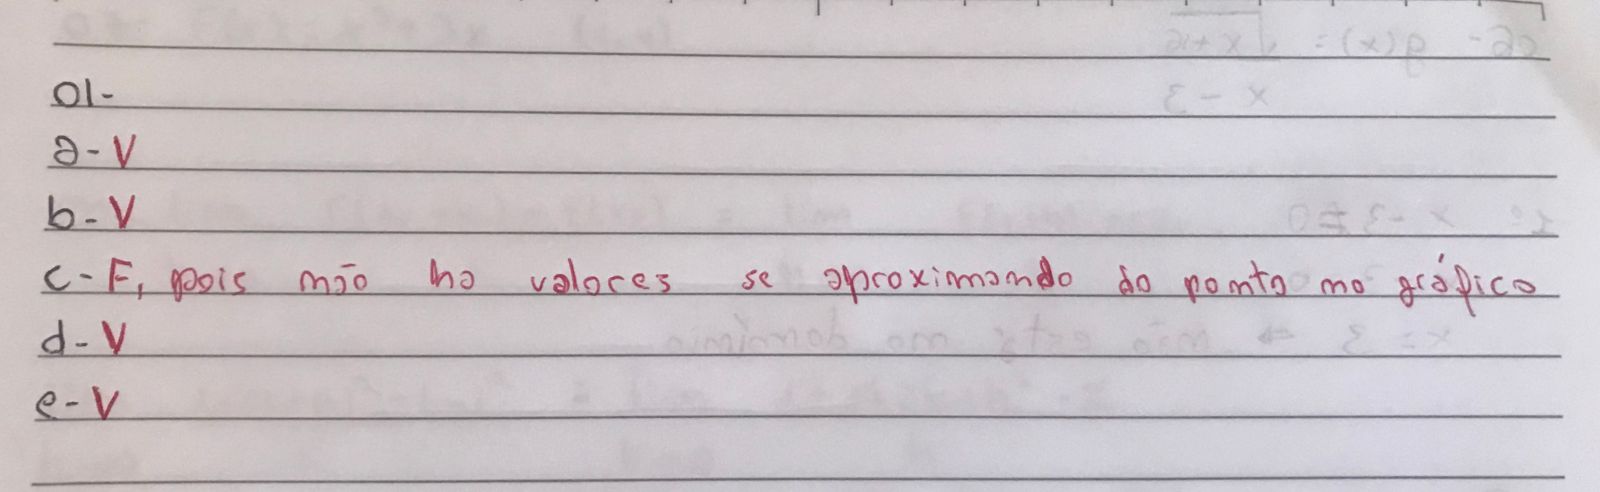 01-
a- V
b- V
c- F, pois não ha valores se aproximando do ponto no gráfico
d- V
e- V